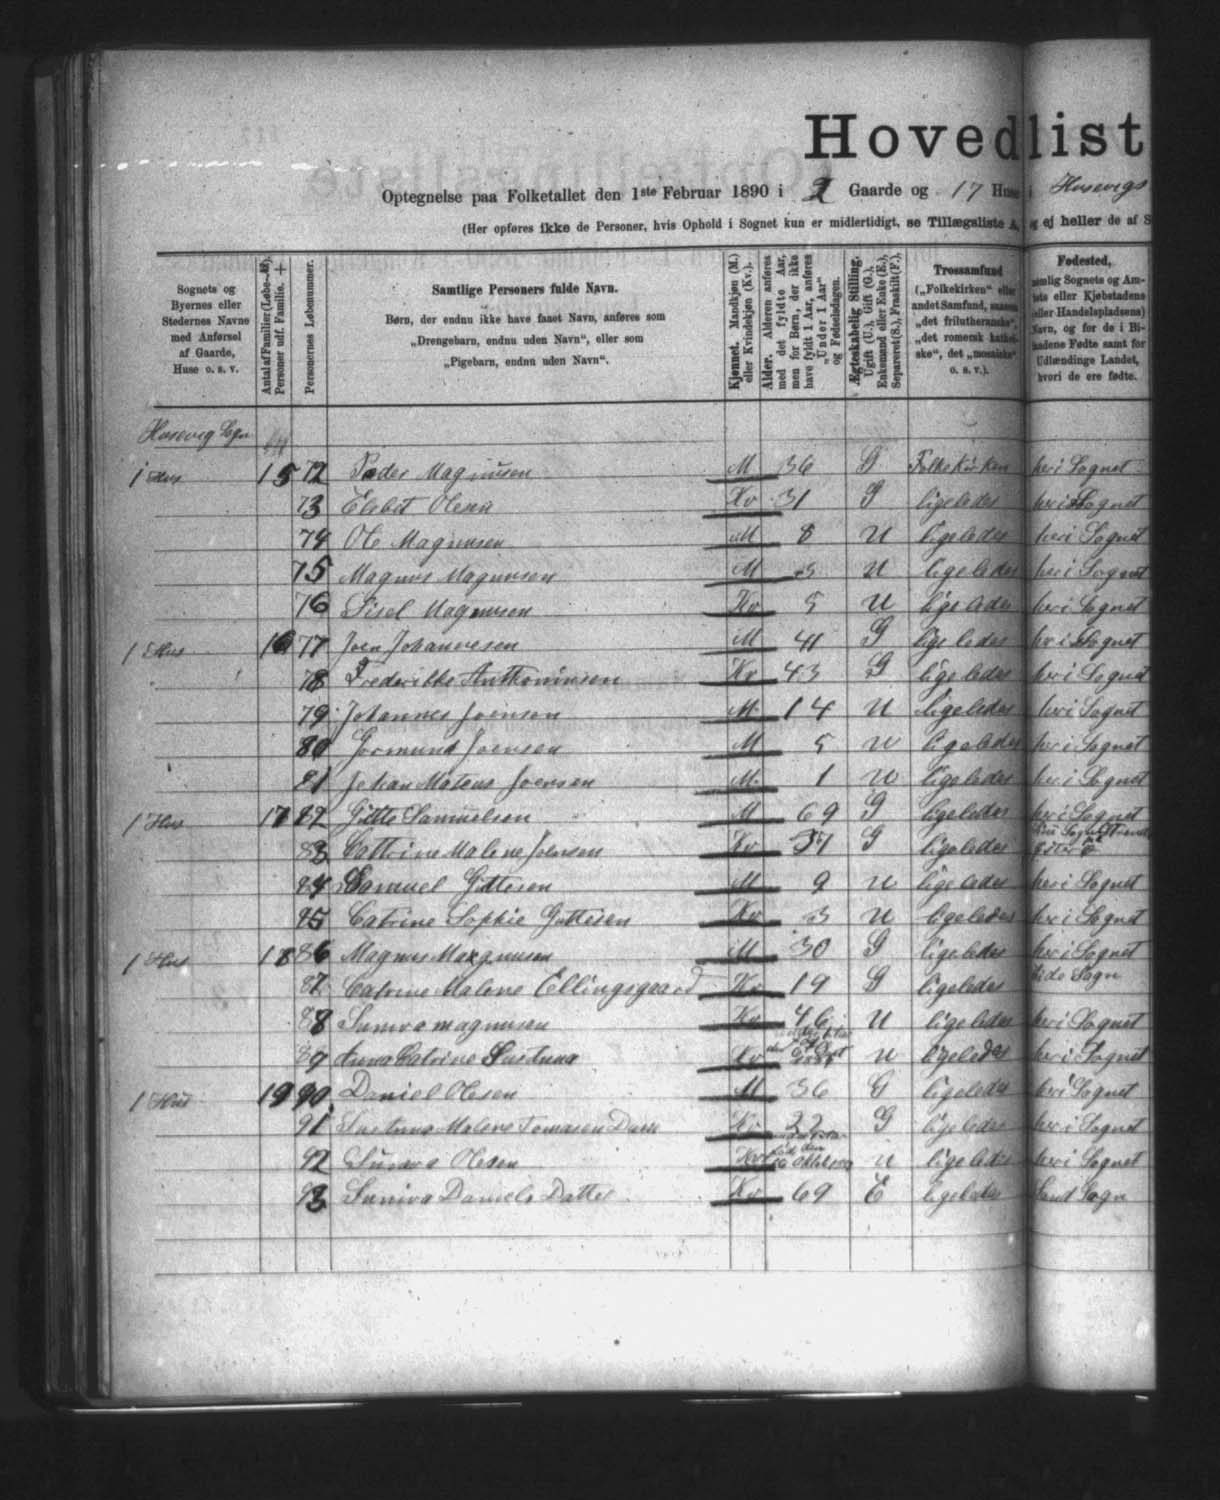 Hovedlist
Optegnelse paa Folketallet den 1ste Februar 1890 i 2 Gaarde og 17 Huse i Husevigs
(Her opføres ikke de Personer, hvis Ophold i Sognet kun er midlertidigt, se Tillægsliste A, og ej heller de af S
Sognets og Byernes eller Stedernes Navne med Anførsel af Gaarde, Huse o. s. v.
Antal af Familier (Løbe-No). Personer udf. Familie. +
Personernes Løbenummer.
Samtlige Personers fulde Navn.
Børn, der endnu ikke have faaet Navn, anføres som
„Drengebarn, endnu uden Navn“, eller som
„Pigebarn, endnu uden Navn“.
Kjønnet. Mandkjøn (M.) eller Kvindekjøn (Kv.).
Alder. Alderen anføres med det fyldte Aar, men for Børn, der ikke have fyldt 1 Aar, anføres „Under 1 Aar“ og Fødselsdagen.
Ægteskabelig Stilling. Ugift (U.), Gift (G.), Enkemand eller Enke (E.), Separeret (S.), Fraskilt (F.).
Trossamfund („Folkekirken“ eller andet Samfund, saasom „det frilutheranske“, „det romersk katholske“, det „mosaiske“ o. s. v.).
Fødested, nemlig Sognets og Amtets eller Kjøbstadens (eller Handelspladsens) Navn, og for de i Bilandene Fødte samt for Udlændinge Landet, hvori de ere fødte.
Husevig Sogn
1 Hus 15 72 Peder Magnusen M 36 G Folkekirken her i Sognet
73 Elsbet Olesen Kv 31 G ligeledes her i Sognet
74 Ole Magnusen M 8 U ligeledes her i Sognet
75 Magnus Magnusen M 3 U ligeledes her i Sognet
76 Sisel Magnusen Kv 5 U ligeledes her i Sognet
1 Hus 16 77 Joen Johannesen M 41 G ligeledes her i Sognet
78 Frederikke Anthoniusen Kv 43 G ligeledes her i Sognet
79 Johannes Joensen M 14 U ligeledes her i Sognet
80 Gormund Joensen M 5 U ligeledes her i Sognet
81 Johan Mateus Joensen M 1 U ligeledes her i Sognet
1 Hus 17 82 Gitte Samuelsen M 69 G ligeledes her i Sognet
83 Cattrine Malene Joensen Kv 37 G ligeledes
84 Samuel Gittesen M 9 U ligeledes her i Sognet
85 Catrine Sophie Guttesen Kv 3 U ligeledes her i Sognet
1 Hus 18 86 Magnus Magnusen M 30 G ligeledes her i Sognet
87 Catrine Malene Ellingsgaard Kv 19 G ligeledes Sogn
88 Sunnva Magnusen Kv 46 U ligeledes her i Sognet
89 Anna Catrine Susanna Kv U ligeledes her i Sognet
1 Hus 19 90 Daniel Olesen M 36 G ligeledes her i Sognet
91 Susanna Malene Tomasen Kv 22 G ligeledes her i Sognet
92 Sunnva Olesen Kv født den U ligeledes her i Sognet
93 Sunniva Daniels Datter Kv 69 E ligeledes Sand Sogn